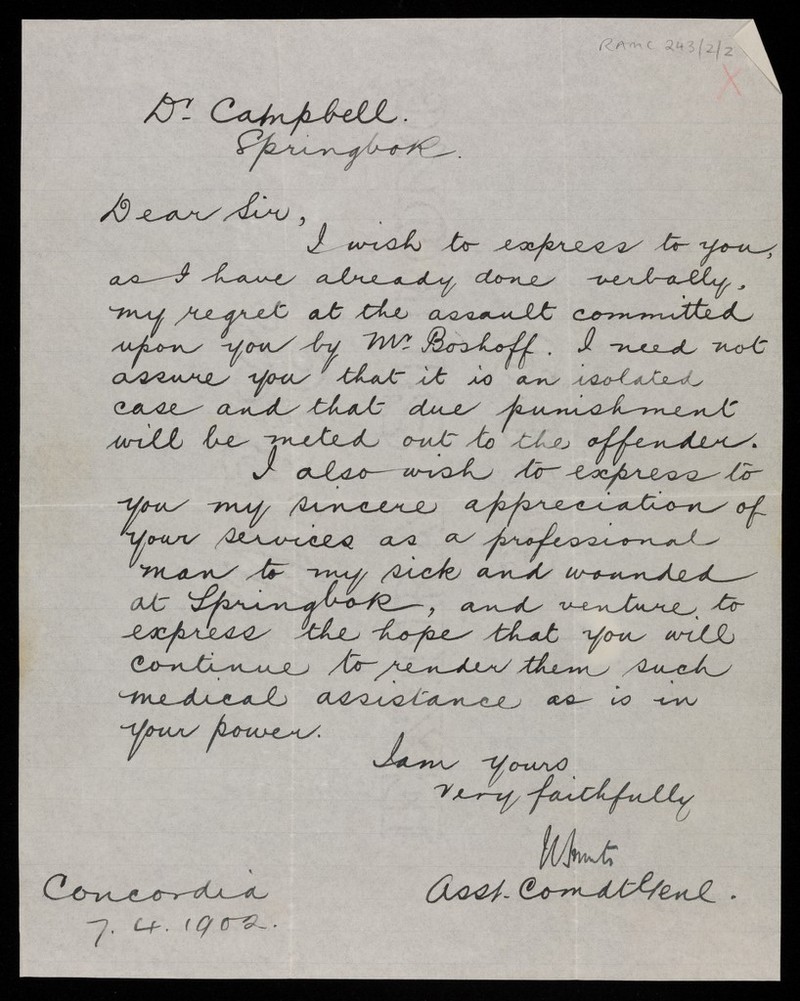 RAMC 243/2/2
X
Dr. Campbell.
Springbok.
Dear Sir,
I wish to express to you,
as I have already done verbally,
my regret at the assault committed
upon you by Mr. Boshoff. I need not
assure you that it is an isolated
case and that due punishment
will be meted out to the offender.
I also wish to express to
you my sincere appreciation of
your services as a professional
man to my sick and wounded
at Springbok, and venture to
express the hope that you will
continue to render them such
medical assistance as is in
your power.
I am yours
very faithfully
JCSmuts
Asst. Comdt Genl.
Concordia
7. 4. 1902.